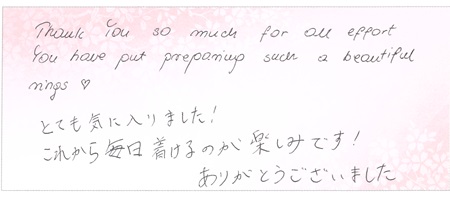 Thank You so much for all effort
You have put preparing such a beautiful
rings ♡
とても気に入りました！
これから毎日着けるのが楽しみです！
ありがとうございました